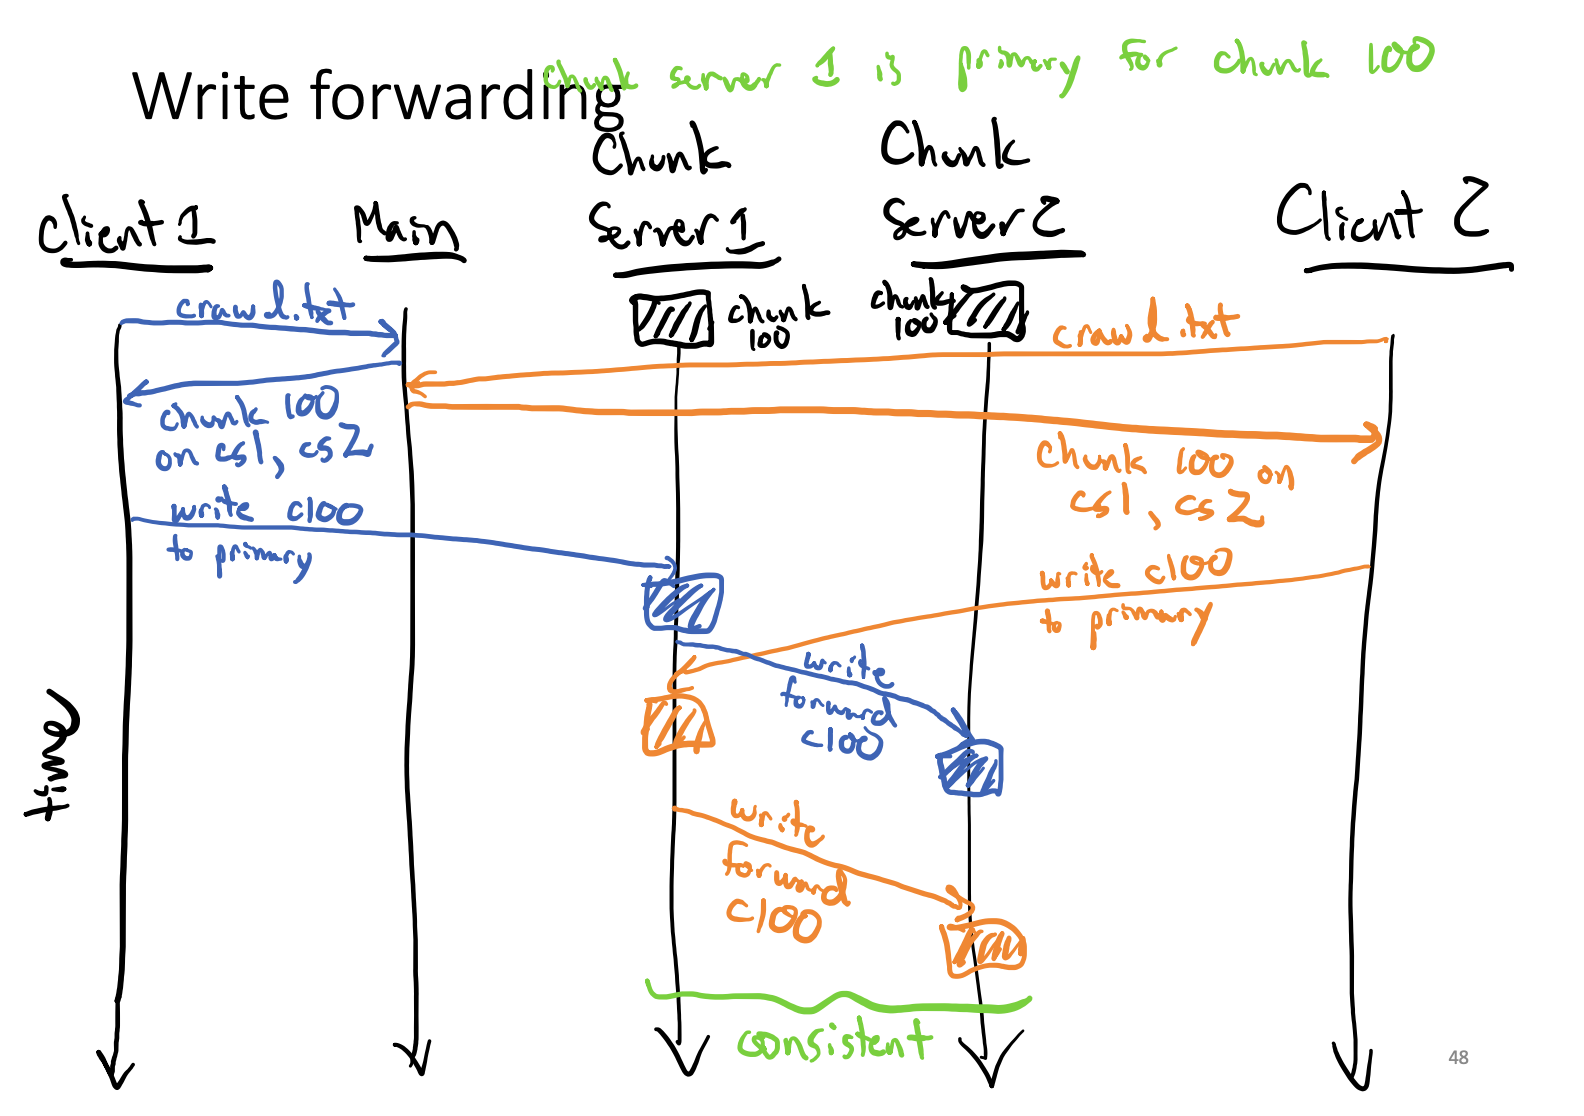 chunk server 1 is primary for chunk 100
Write forwarding
Client 1
Main
Chunk
Server 1
Chunk
Server 2
Client 2
crawl.txt
chunk
100
chunk
100
crawl.txt
chunk 100
on cs1, cs2
Chunk 100 on
cs1, cs2
write c100
to primary
write c100
to primary
write
forward
c100
time
write
forward
c100
consistent
48